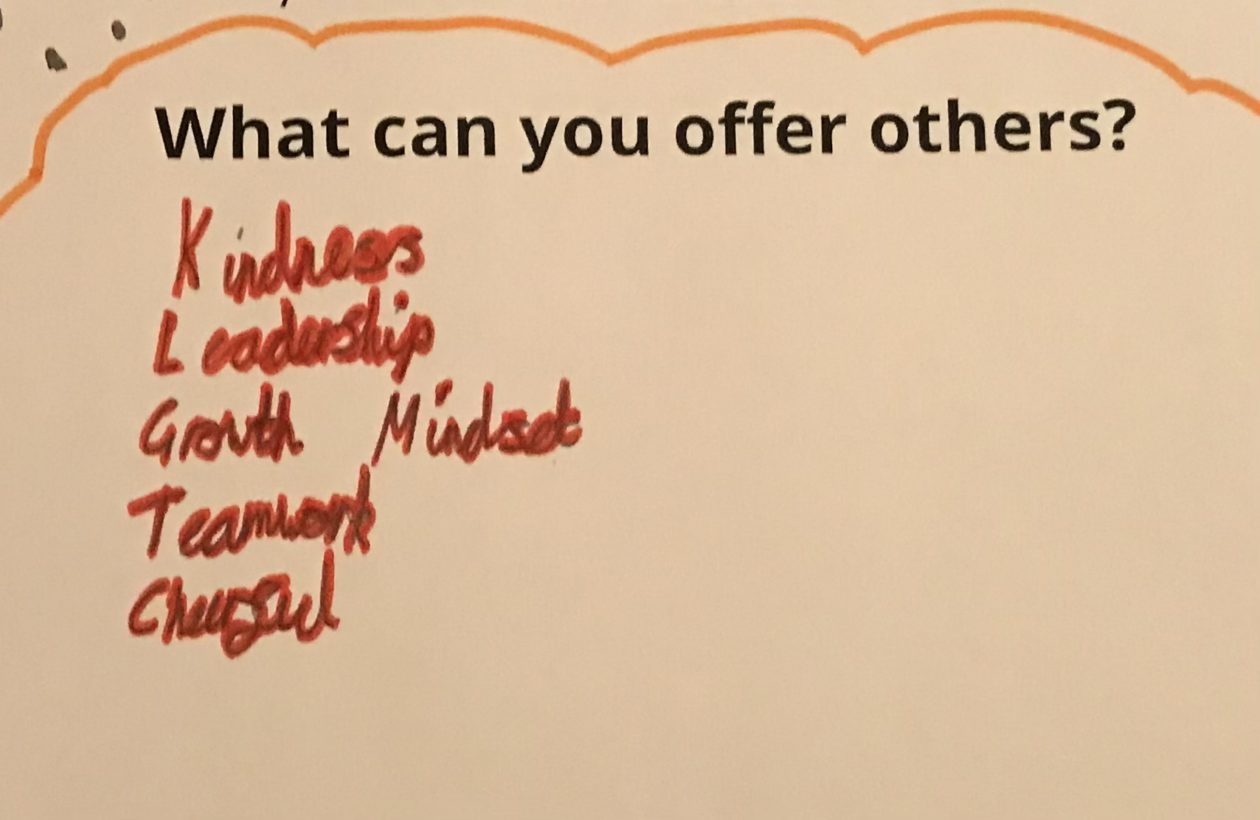 What can you offer others?
Kindness
Leadership
Growth Mindset
Teamwork
Cheerful